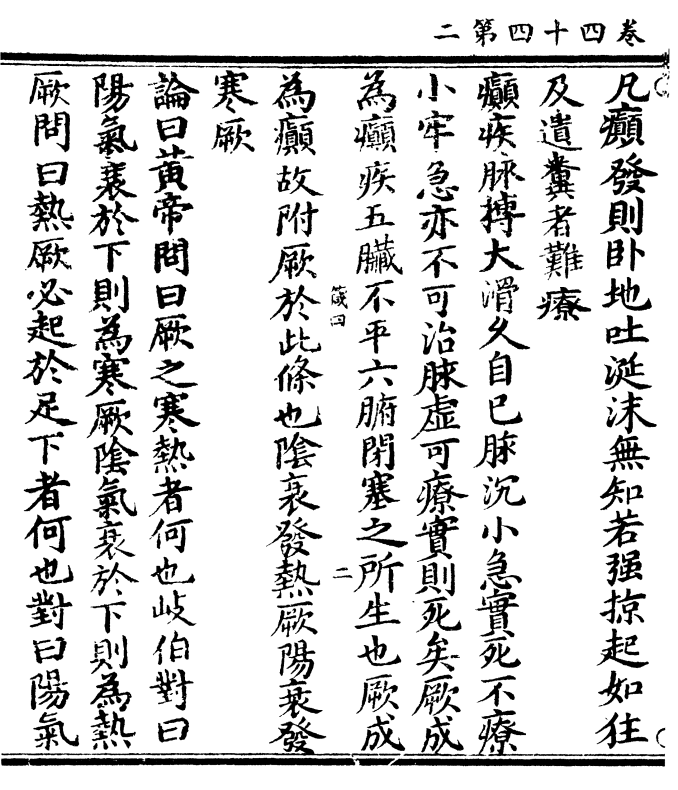 卷四十四第二
凡癲發則卧地吐涎沫無知若强掠起如狂
及遺糞者難療
癲疾脉搏大滑久自已脉沉小急實死不療
小牢急亦不可治脉虛可療實則死矣厥成
為癲疾五臟不平六腑閉塞之所生也厥成
箴四
二
為癲故附厥於此條也陰衰發熱厥陽衰發
寒厥
論曰黃帝問曰厥之寒熱者何也岐伯對曰
陽氣衰於下則為寒厥陰氣衰於下則為熱
厥問曰熱厥必起於足下者何也對曰陽氣